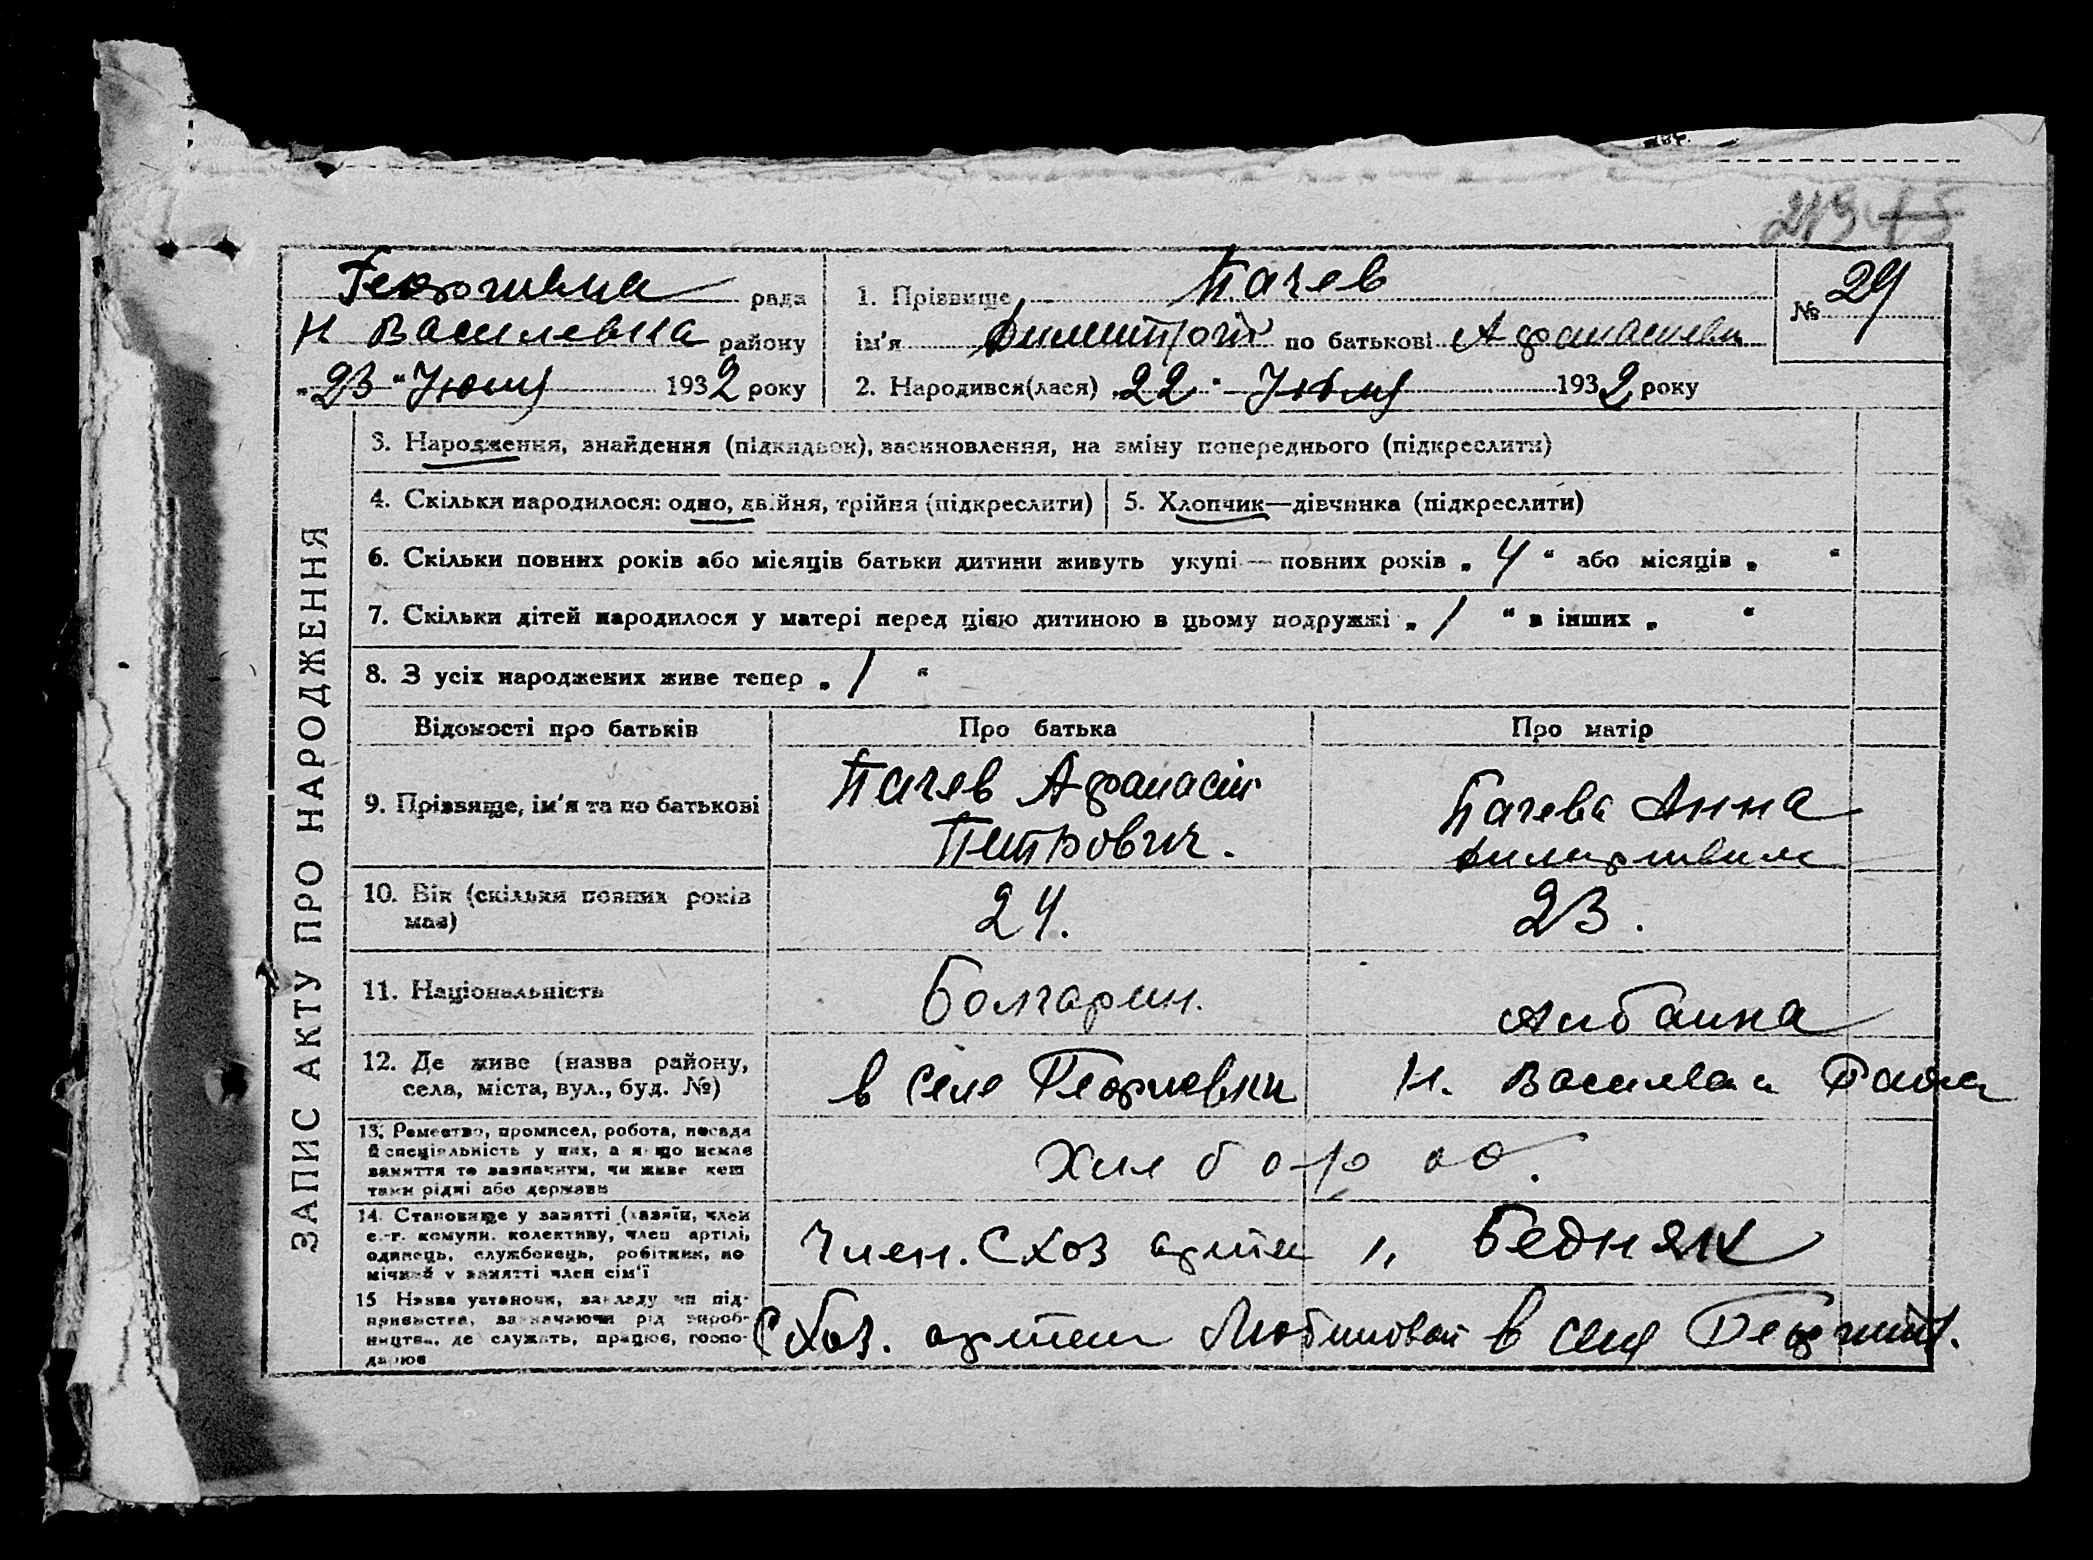 Георгиевка рада
Н Василевка району
„23“ Июня 1932 року
1. Прізвище Пачев
ім'я Димитрий по батькові Афанасиев
2. Народився(лася) „22“ Июня 1932 року
№ 29
ЗАПИС АКТУ ПРО НАРОДЖЕННЯ
3. Народження, знайдення (підкидьок), всиновлення, на зміну попереднього (підкреслити)
4. Скільки народилося: одно, двійня, трійня (підкреслити)
5. Хлопчик—дівчинка (підкреслити)
6. Скільки повних років або місяців батьки дитини живуть укупі — повних років „ 4 “ або місяців „ “
7. Скільки дітей народилося у матері перед цією дитиною в цьому подружжі „ 1 “ в інших „ “
8. З усіх народжених живе тепер „ 1 “
Відомості про батьків Про батька Про матір
9. Прізвище, ім'я та по батькові
Пачев Афанасий
Петрович.
Пачева Анна
10. Вік (скільки повних років
має)
24.
23.
11. Національність
Болгарин.
Албанка
12. Де живе (назва району,
села, міста, вул., буд. №)
в селе Георгиевки
Н. Василевка Района
13. Ремество, промисел, робота, посада
й спеціяльність у них, а якщо немає
заняття то зазначити, чи живе кошт
тами рідні або держави
Хлебороб.
14. Становище у занятті (хазяїн, член
с.-г. комуни. колективу, член артілі,
одинець, службовець, робітник, по
мічний у занятті член сім'ї
Член. Схоз артели „ Бедняк
15 Назва установи, закладу чи під-
приємства, зазначаючи рід вироб-
ництва, де служить, працює, госпо-
дарює
Схоз. артели в селе Георгиев.